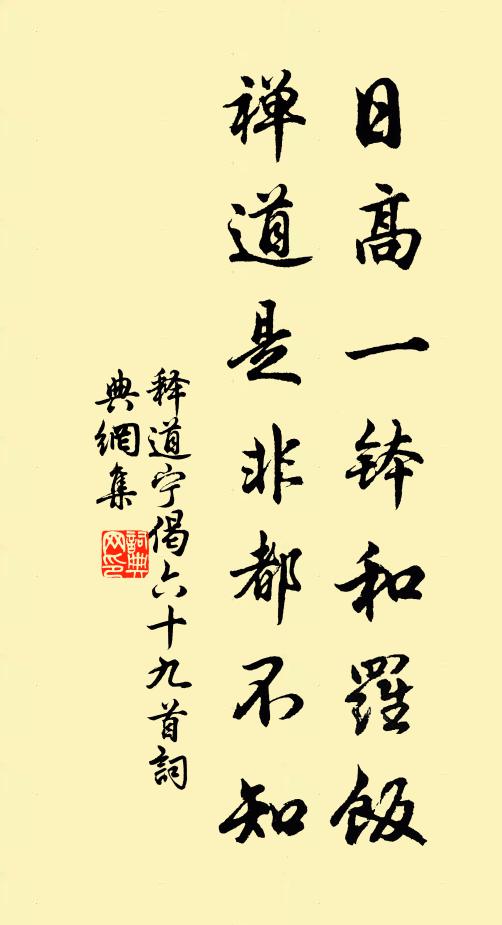 日高一钵和羅飯
禅道是非都不知
释道宁偈六十九首詞
典網集
詞典
网印